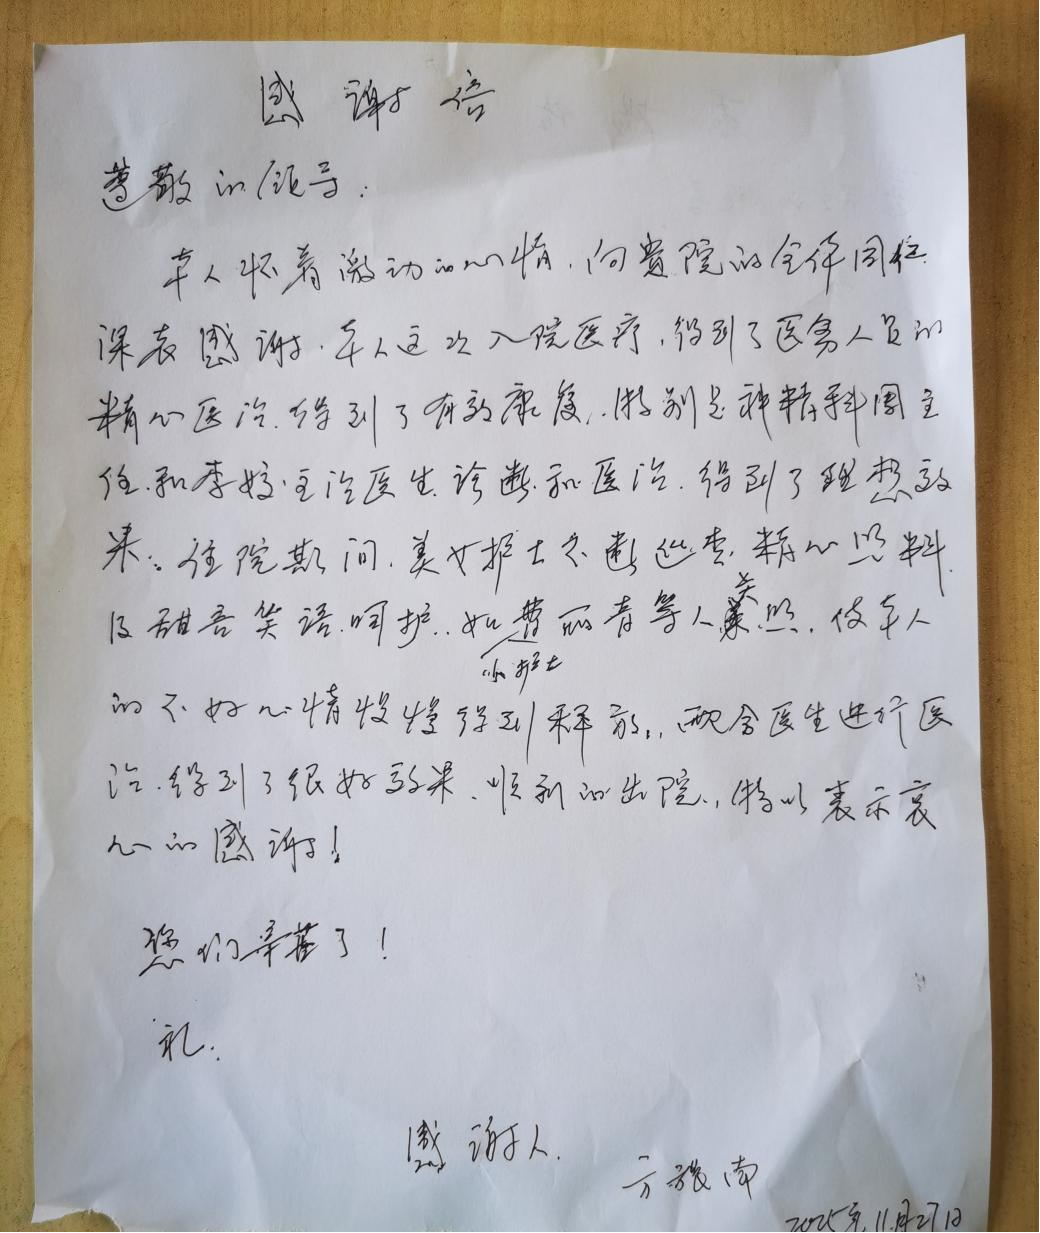 感谢信
尊敬的领导：
本人怀着激动的心情，向贵院的全体同仁
深表感谢。本人这次入院医疗，得到了医务人员的
精心医治，得到了有效康复，特别是神精科周主
任和李婷主治医生诊断和医治，得到了理想效
果。住院期间，美女护士不断巡查，精心照料
及甜言笑语呵护，如费丽青等人关照，使本人
小护士
的不好心情慢慢得到释放，配合医生进行医
治，得到了很好效果，顺利的出院，特以表示衷
心的感谢！
您们辛苦了！
礼.
感谢人.
方 南
2025年11月27日